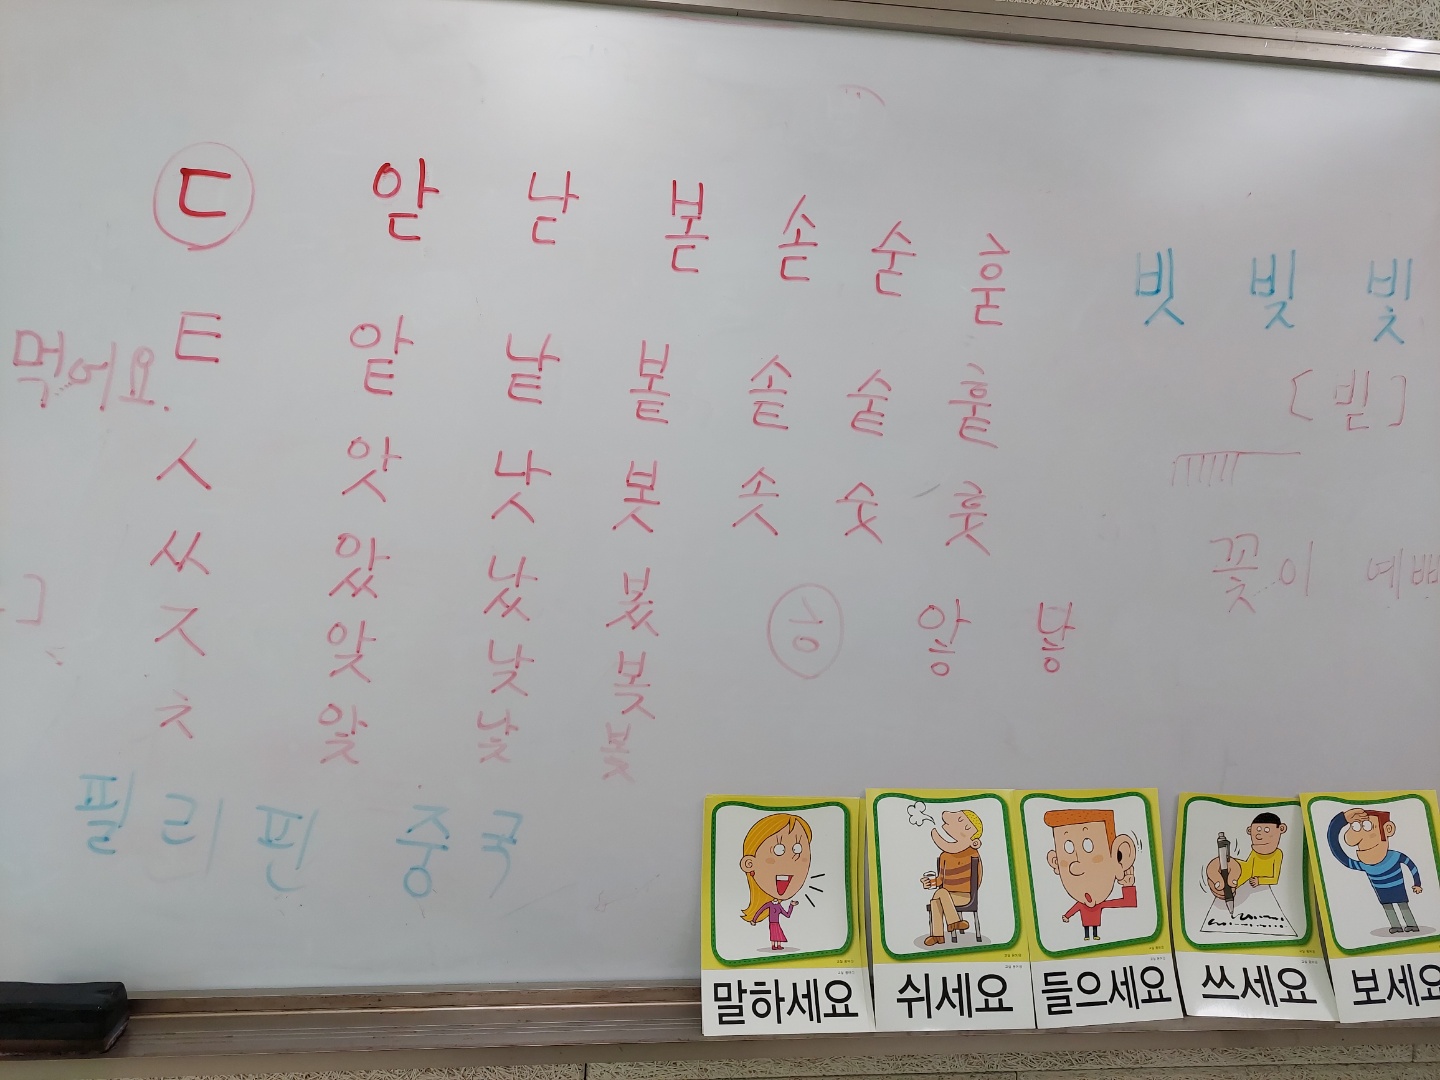 ㄷ 앋 낟 볻 솓 숟 흗
빗 빚 빛
ㅌ 앝 낱 볱 솥 숱 흩
먹어요.
[빋]
ㅅ 앗 낫 봇 솟 숫 흣
ㅆ 았 났 봈
꽃이 예쁘
ㅈ 앚 낮 봊
ㅎ 앟 낳
ㅊ 앛 낯 봋
필리핀 중국
말하세요 쉬세요 들으세요 쓰세요 보세요